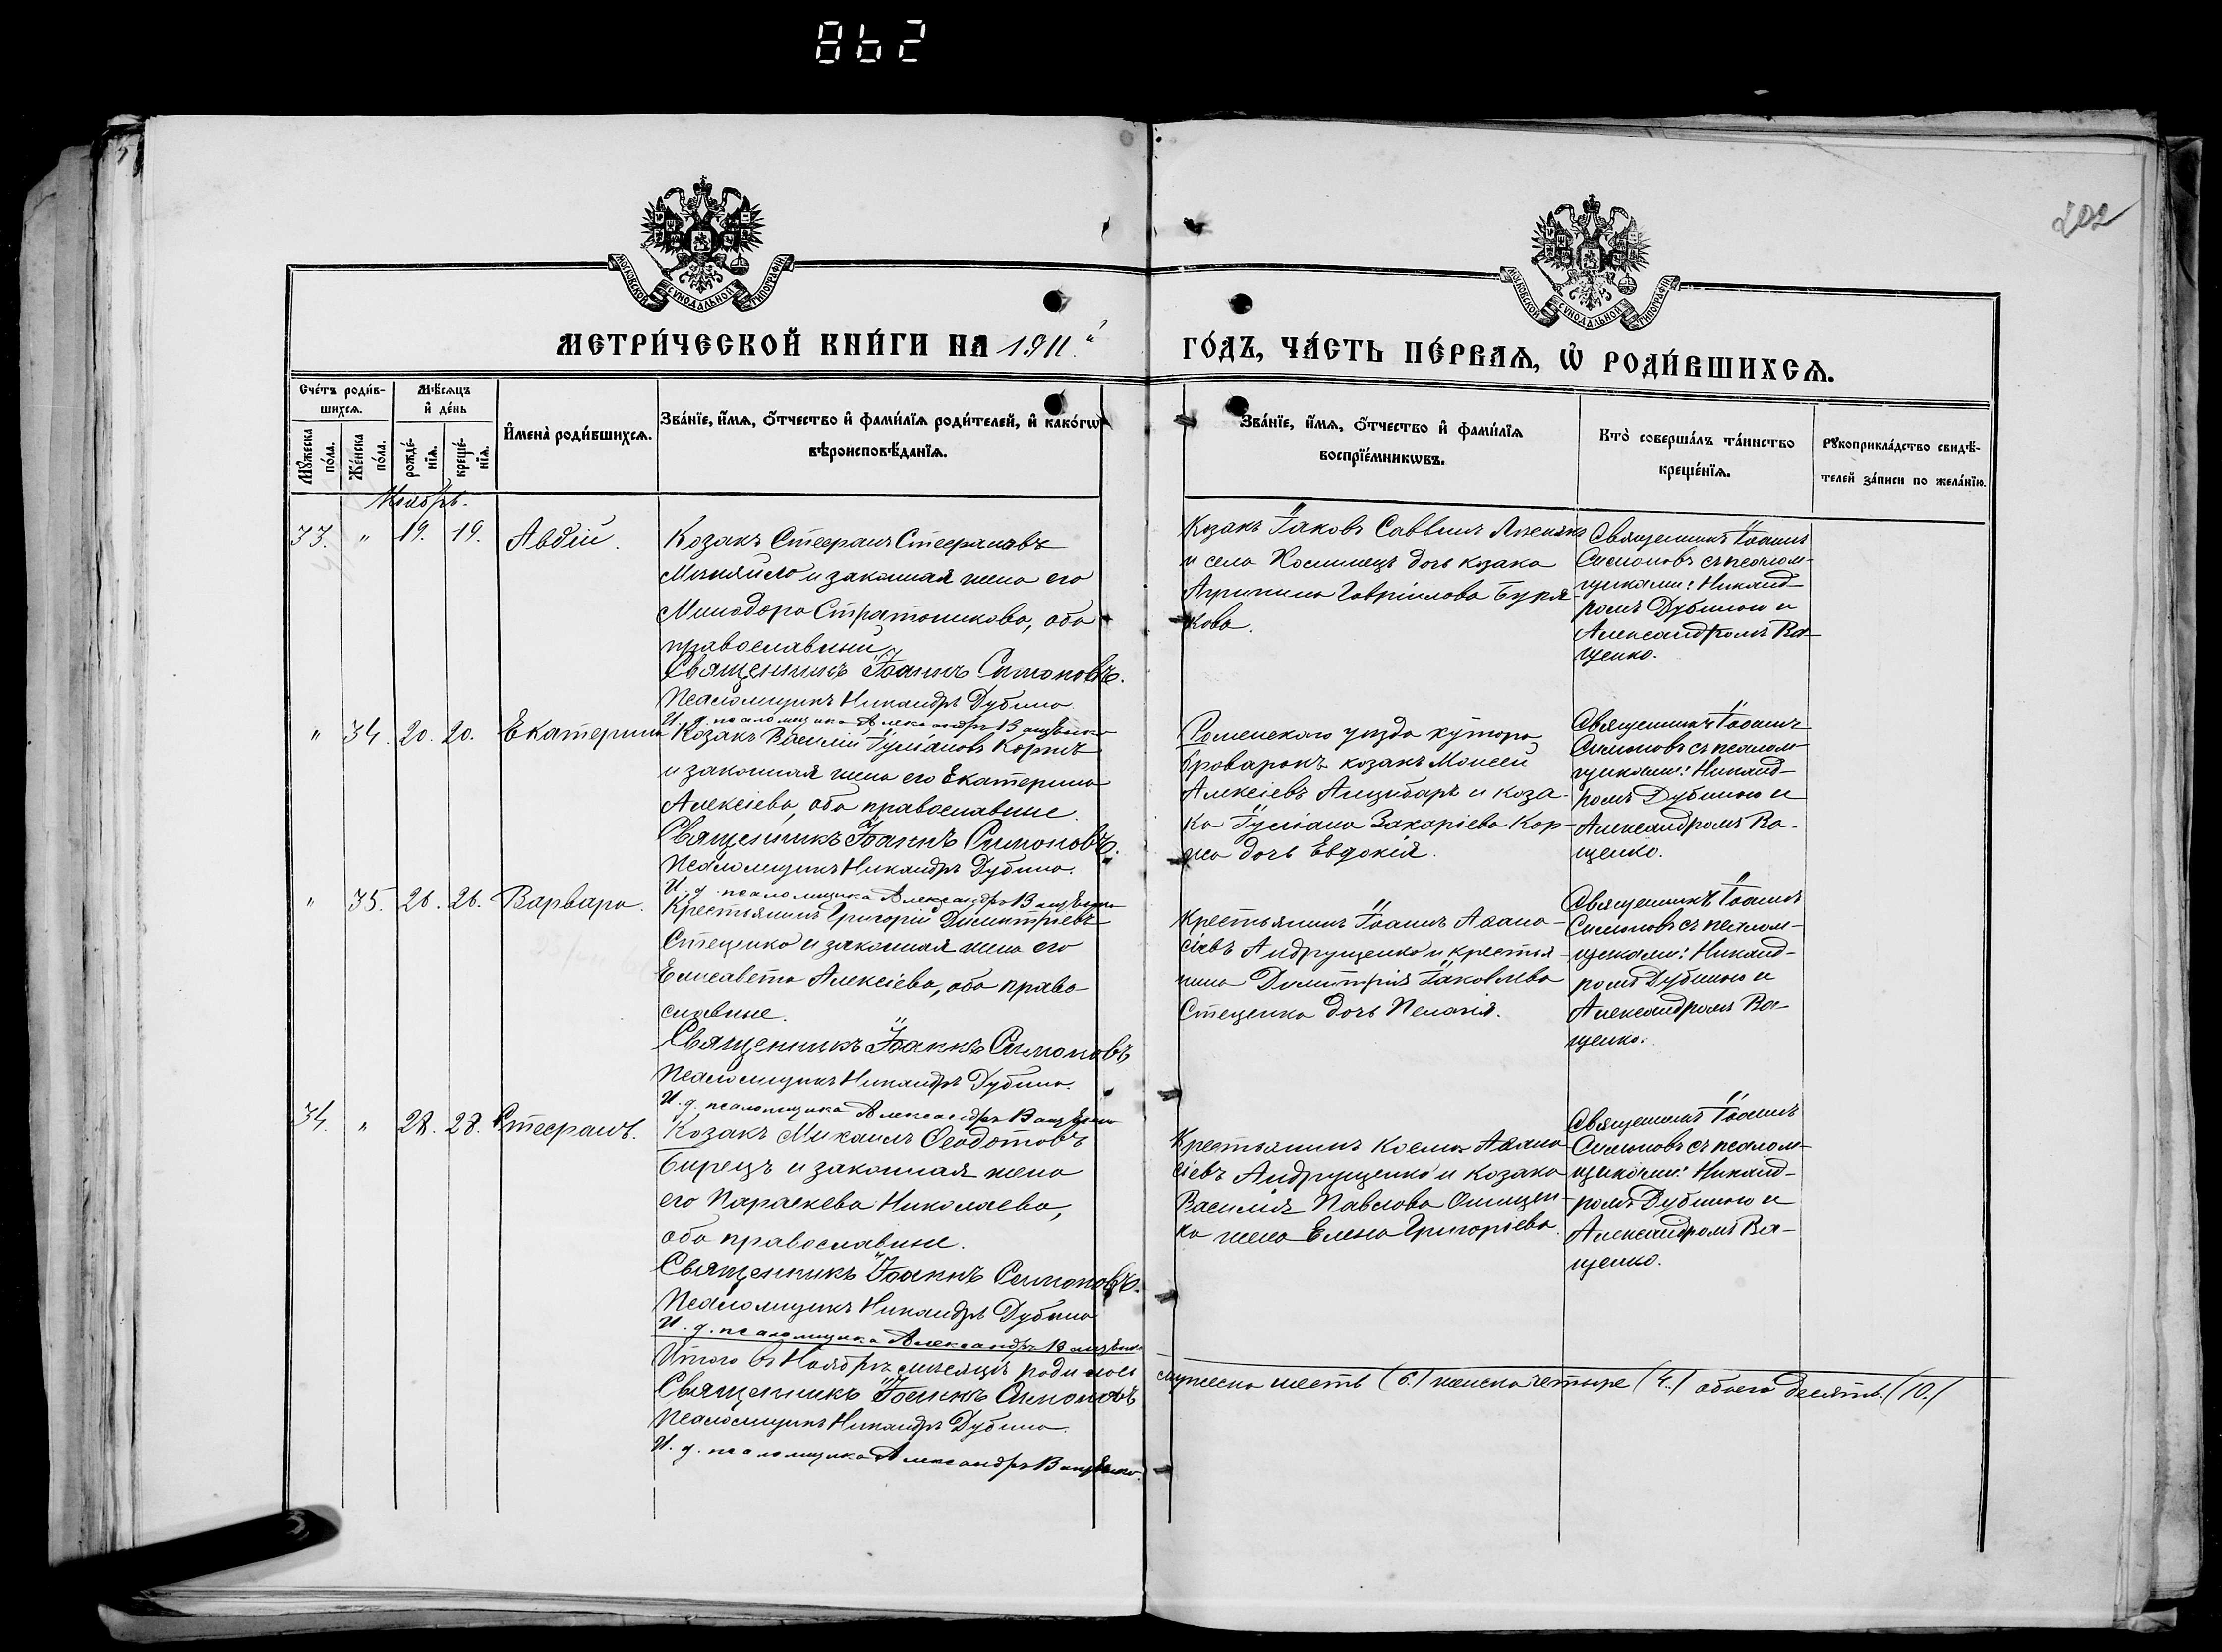 862
202
МОСКОВСКОЙ СУНОДАЛЬНОЙ ТИПОГРАФІИ
МОСКОВСКОЙ СУНОДАЛЬНОЙ ТИПОГРАФІИ
МЕТРИ́ЧЕСКОЙ КНИ́ГИ НА 1911.й
ГО́ДЪ, ЧА́СТЬ ПЕ́РВАѦ, Ѡ РОДИ́ВШИХСѦ.
Сче́тъ роди́в-
шихсѧ.
Мѣ́сѧцъ
и҆ де́нь
Мꙋ́жеска по́ла.
Же́нска по́ла.
рожде́нїѧ.
креще́нїѧ.
И҆мена̀ роди́вшихсѧ.
Зва́нїе, и҆́мѧ, о҆́тчество и҆ фами́лїѧ роди́телей, и҆ како́гѡ
вѣроисповѣ́данїѧ.
Зва́нїе, и҆́мѧ, о҆́тчество и҆ фами́лїѧ
воспрїе́мникѡвъ.
Кто̀ соверша́лъ та́инство
креще́нїѧ.
Рꙋкоприкла́дство свидѣ́-
телей за́писи по жела́нїю.
Ноябрь.
33. " 19. 19. Авдій.
Козакъ Стефанъ Стефановъ
и законная жена его
Минодора Стратоникова, оба
православныи
Священникъ Іоаннъ Симоновъ.
Псаломщикъ Никандръ Дубина.
И. д. псаломщика Александръ Ващенко
Козакъ Іаковъ Саввинъ
и села дочь козака
Агрипина Гавріилова Буря-
кова.
Священникъ Іоаннъ
Симоновъ съ псалом-
щиками:Никанд-
ромъ Дубиною и
Александромъ Ва-
щенко.
" 34. 20. 20. Екатерина
Козакъ Василій Іуліановъ Коржъ
и законная жена его Екатерина
Алексіева, оба православные.
Священникъ Іоаннъ Симоновъ.
Псаломщикъ Никандръ Дубина.
И. д. псаломщика Александръ Ващенко
Роменскаго уѣзда хутора
Броварокъ козакъ Моисей
Алексіевъ и коза-
ка Іуліана Захаріева Кор-
жа дочь Евдокія.
Священникъ Іоаннъ
Симоновъ съ псалом-
щиками: Никанд-
ромъ Дубиною и
Александромъ Ва-
щенко.
" 35. 26. 26. Варвара.
Крестьянинъ Григорій Димитріевъ
Стеценко и законная жена его
Елисавета Алексіева, оба право-
славные.
Священникъ Іоаннъ Симоновъ
Псаломщикъ Никандръ Дубина.
И. д. псаломщика Александръ Ващенко
Крестьянинъ Іоаннъ Аѳана-
сіевъ Андрущенко и крестья-
нина Димитрія Іаковлева
Стеценка дочь Пелагія.
Священникъ Іоаннъ
Симоновъ съ псалом-
щиками: Никанд-
ромъ Дубиною и
Александромъ Ва-
щенко.
34. " 28. 28. Стефанъ.
Козакъ Михаилъ Ѳеодотовъ
Бирецъ и законная жена
его Параскева Николаева,
оба православные.
Священникъ Іоаннъ Симоновъ.
Псаломщикъ Никандръ Дубина
И. д. псаломщика Александръ Ващенко
Крестьянинъ Косма Аѳана-
сіевъ Андрущенко и козака
Василія Павлова Онищен-
ка жена Елена Григоріева.
Священникъ Іоаннъ
Симоновъ съ псалом-
щиками: Никанд-
ромъ Дубиною и
Александромъ Ва-
щенко.
Итого въ Ноябрѣ мѣсяцѣ родилось мужеска шесть (6.) женска четыре (4.) обоего десять. (10.)
Священникъ Іоаннъ Симоновъ
Псаломщикъ Никандръ Дубина.
И. д. псаломщика Александръ Ващенко.